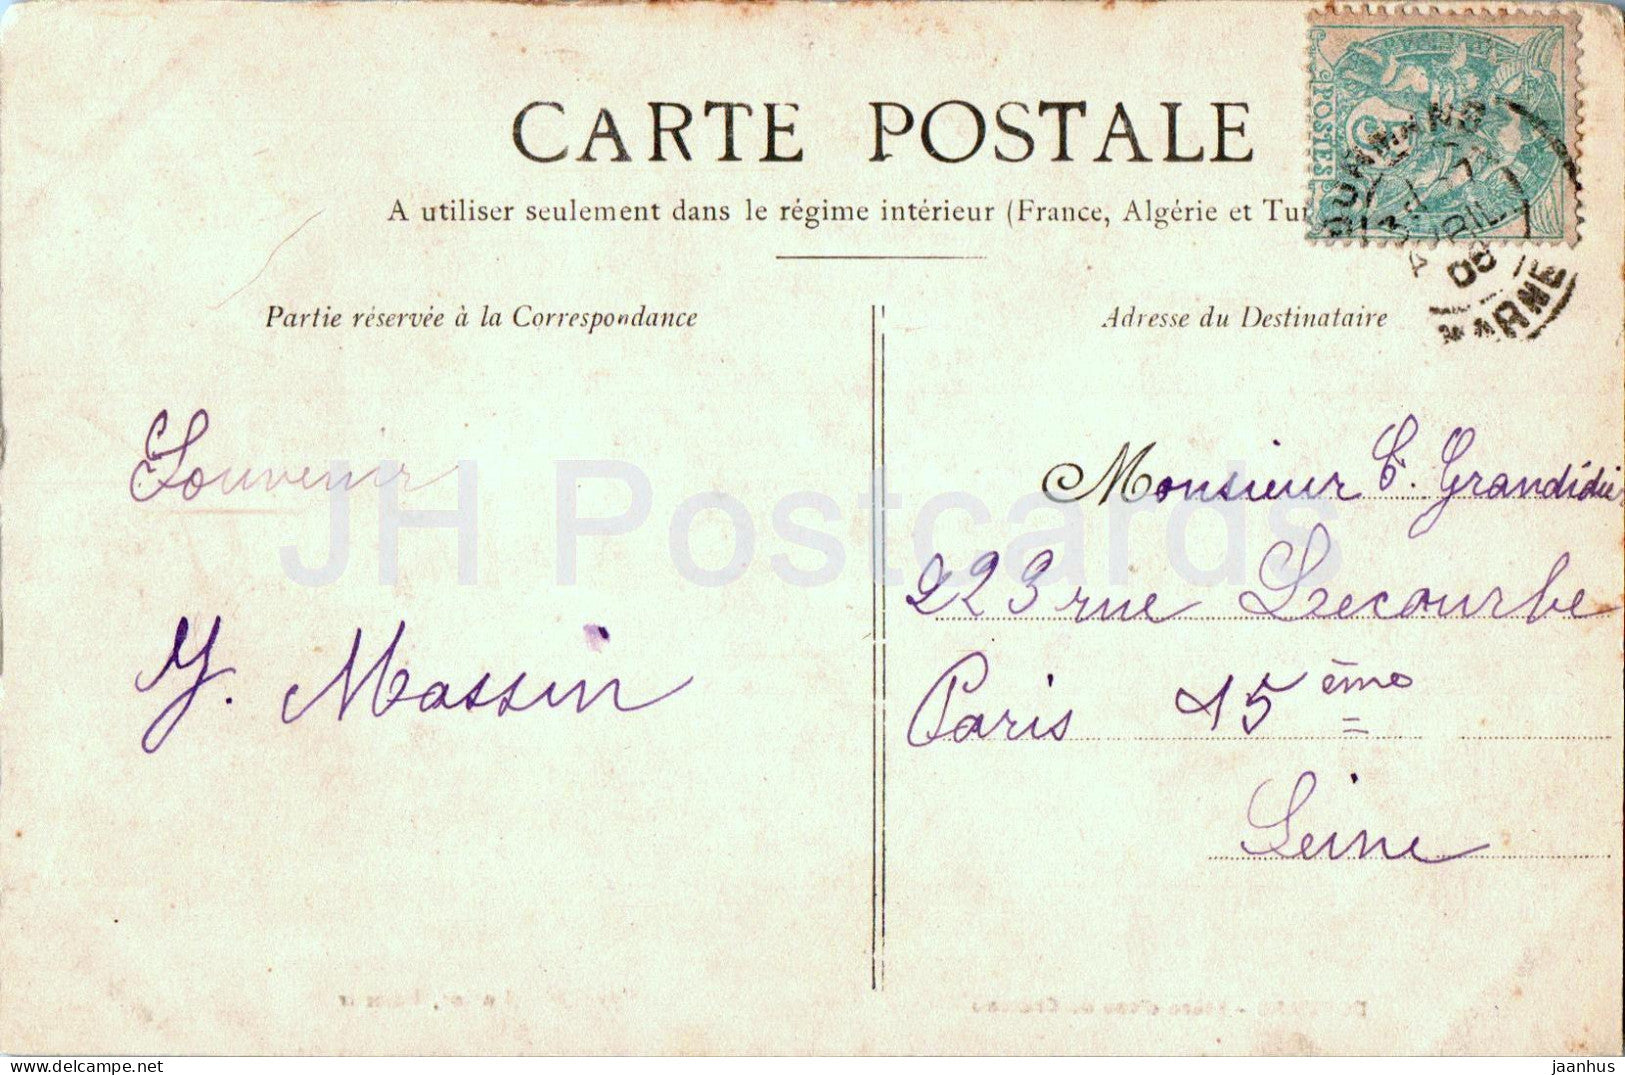 CARTE POSTALE
A utiliser seulement dans le régime intérieur (France, Algérie et Tu
Partie réservée à la Correspondance
Adresse du Destinataire
POSTES
5
AVRIL
08
MARNE
Souvenir
Y. Massin
Monsieur C. Grandidier
223 rue Lecourbe
Paris 15ème
Seine
JH Postcards
delcampe.net
jaanhus